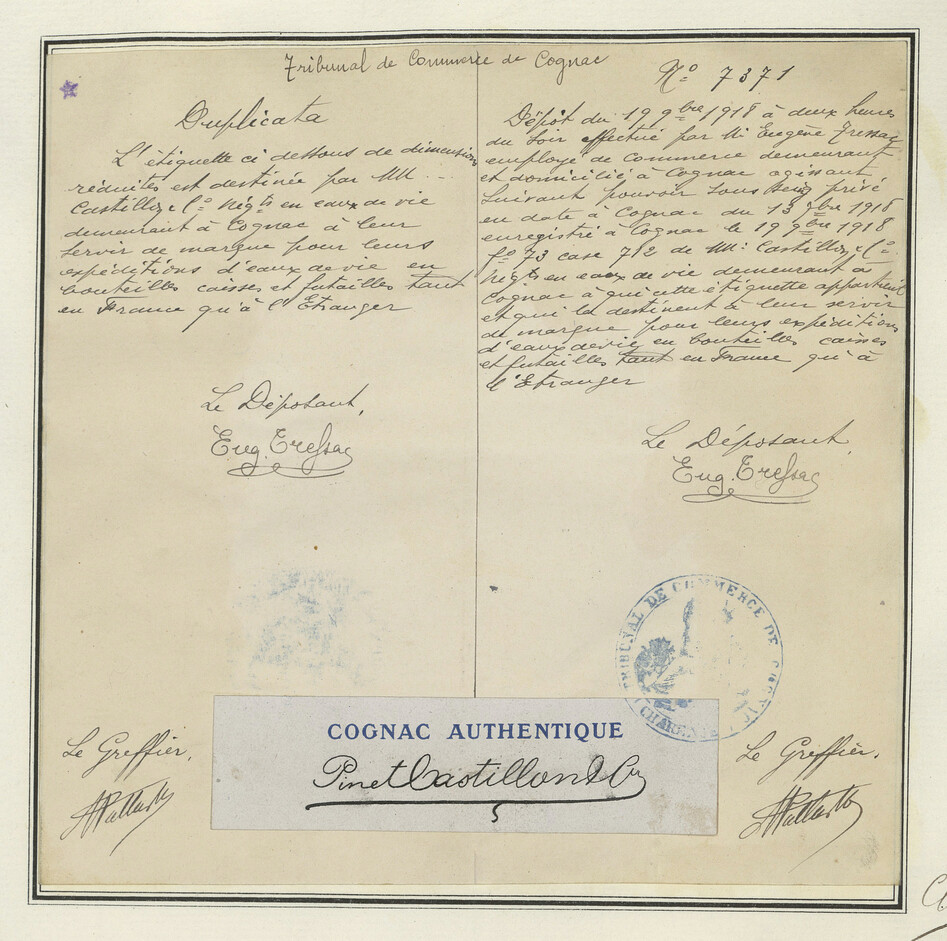 Tribunal de Commerce de Cognac
Nº 7371
Duplicata
L'étiquette ci dessous de dimensions
réduites est destinée par MM ...
Castillon & Cº Négts en eaux de vie
demeurant à Cognac à leur
servir de marque pour leurs
expéditions d'eaux de vie en
bouteilles caisses et futailles tant
en France qu'à l'Etranger
Le Déposant,
Eug. Tressac
Dépôt du 19 9bre 1918 à deux heures
du soir effectué par M. Eugène Tressac
employé de commerce demeurant
et domicilié à Cognac agissant
suivant pouvoir sous seing privé
en date à Cognac du 13 9bre 1918
enregistré à Cognac le 19 9bre 1918
fº 73 case 712 de MM. Castillon & Cº
Négts en eaux de vie demeurant à
Cognac à qui cette étiquette appartient
et qui la destinent à leur servir
de marque pour leurs expéditions
d'eaux de vie en bouteilles caisses
et futailles tant en France qu'à
l'Etranger
Le Déposant,
Eug. Tressac
TRIBUNAL DE COMMERCE DE COGNAC
(CHARENTE)
COGNAC AUTHENTIQUE
Pinet Castillon & Co
Le Greffier,
Le Greffier,